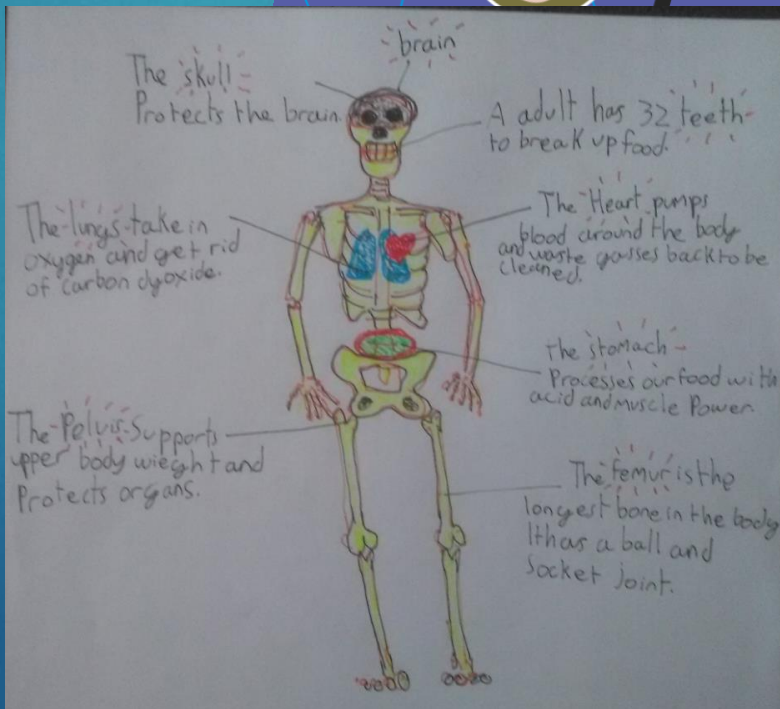 brain
The skull
Protects the brain.
A adult has 32 teeth
to break up food.
The lungs take in
oxygen and get rid
of carbon dyoxide.
The Heart pumps
blood around the body
and waste gasses back to be
cleaned.
the stomach
Processes our food with
acid and Muscle Power.
The Pelvis Supports
upper body wieght and
Protects organs.
The femur is the
longest bone in the body
It has a ball and
socket joint.